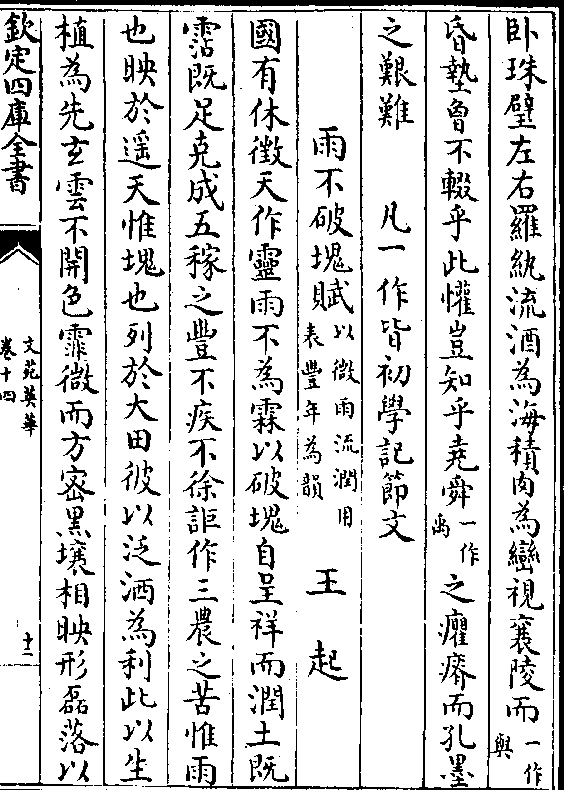 卧珠璧左右羅紈流酒為海積肉為巒視襄陵而一作與
昏墊曾不輟乎此懽豈知乎堯舜一作禹之癯瘠而孔墨
之艱難　凡一作皆初學記節文
雨不破塊賦以微雨流潤用表豐年為韻　王起
國有休徴天作靈雨不為霖以破塊自呈祥而潤土既
霑既足克成五稼之豐不疾不徐詎作三農之苦惟雨
也映於遥天惟塊也列於大田彼以泛洒為利此以生
植為先玄雲不開色霏微而方密黒壤相映形磊落以
欽定四庫全書
文苑英華
卷十四
十二